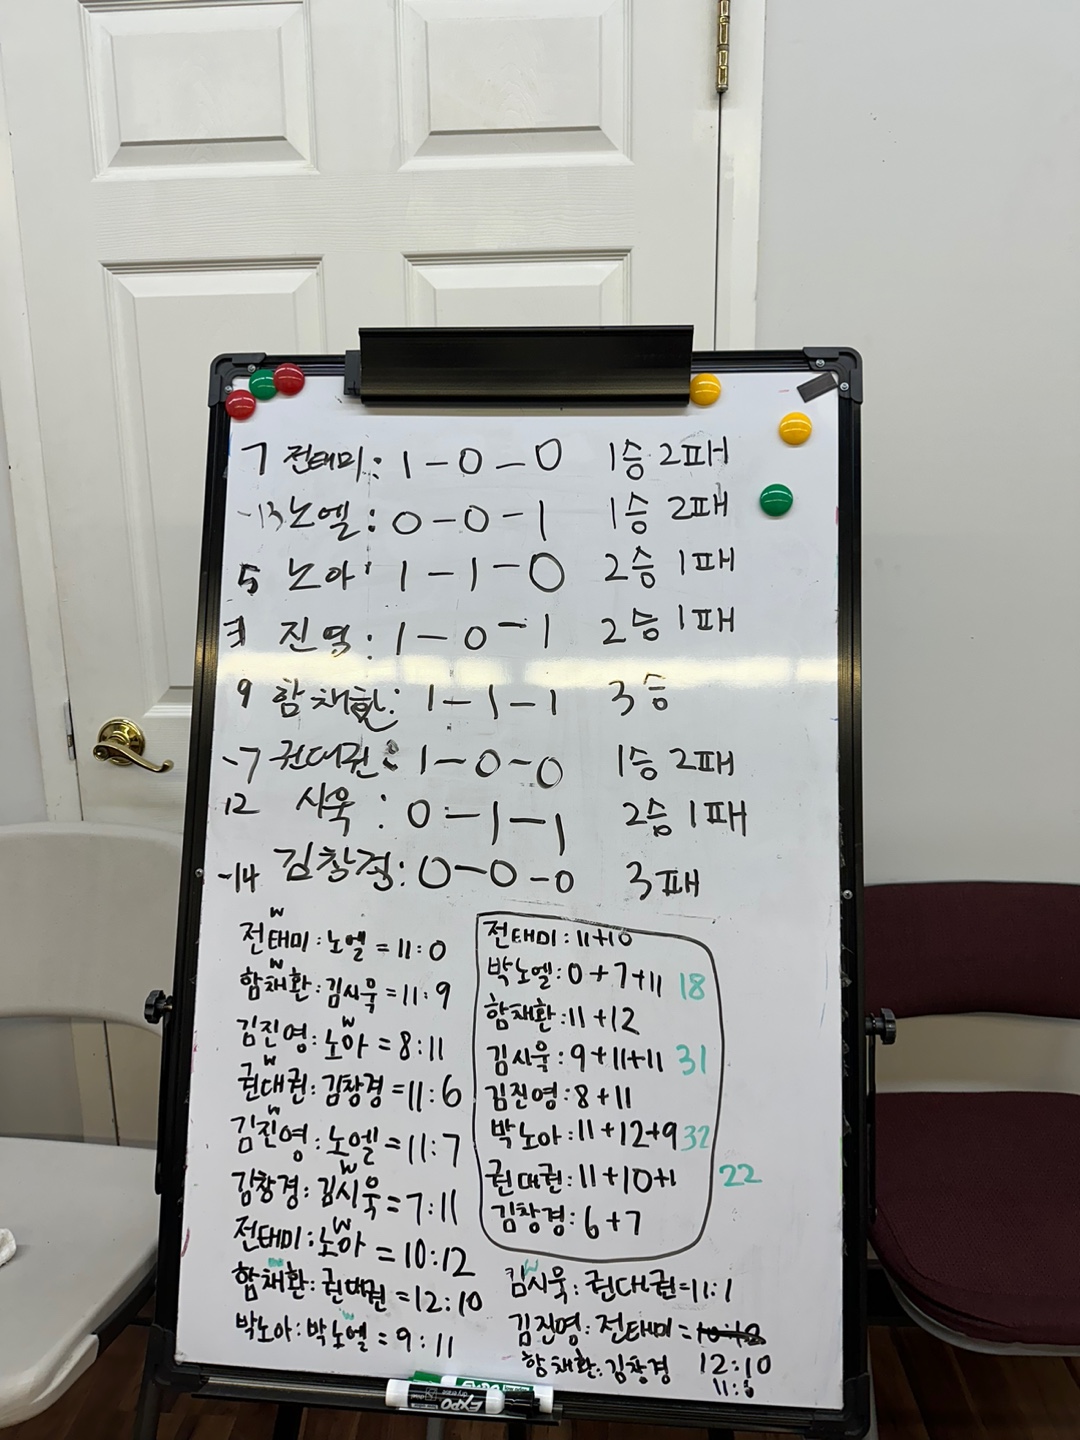 7 전태미: 1-0-0 1승 2패
-13 노엘: 0-0-1 1승 2패
5 노아: 1-1-0 2승 1패
진영: 1-0-1 2승 1패
9 함채환: 1-1-1 3승
-7 권대권: 1-0-0 1승 2패
12 시욱: 0-1-1 2승 1패
-14 김창경: 0-0-0 3패
W
전태미:노엘=11:0
W
함채환:김시욱=11:9
W
김진영:노아=8:11
W
권대권:김창경=11:6
W
김진영:노엘=11:7
W
김창경:김시욱=7:11
W
전태미:노아=10:12
W
함채환:권대권=12:10
W
박노아:박노엘=9:11
전태미:11+10
박노엘:0+7+11 18
함채환:11+12
김시욱:9+11+11 31
김진영:8+11
박노아:11+12+9 32
권대권:11+10+1 22
김창경:6+7
W
김시욱:권대권=11:1
김진영:전태미=
12:10
함채환:김창경
EXPO